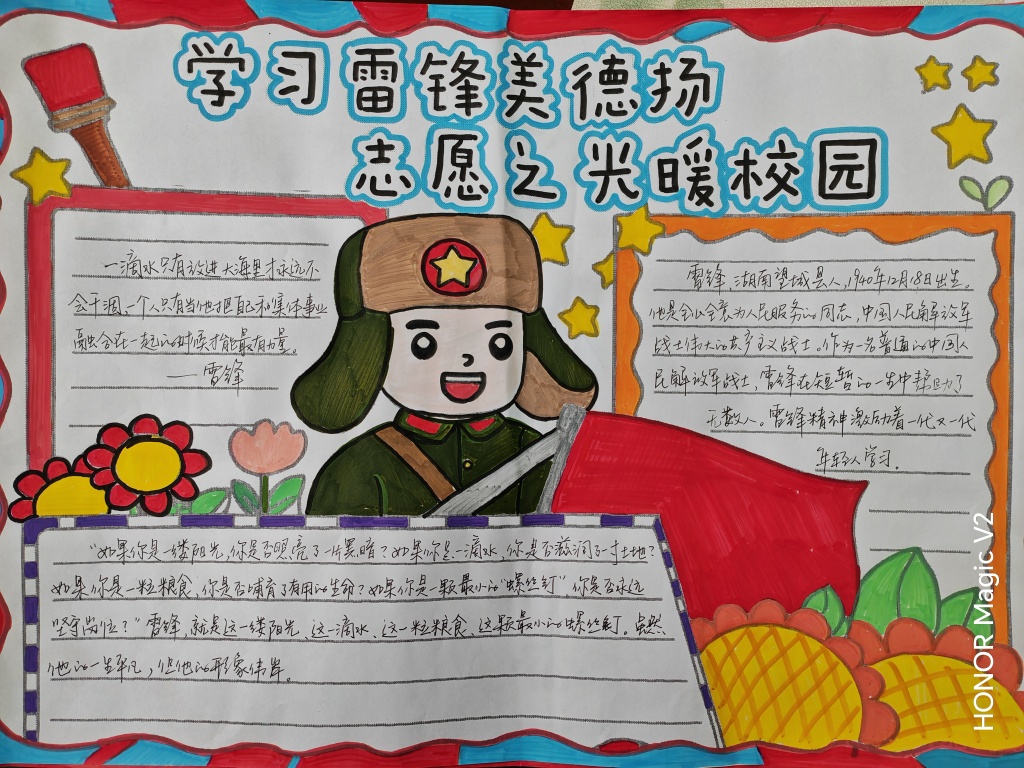 学习雷锋美德扬
志愿之光暖校园
一滴水只有放进大海里才永远不
会干涸,一个人只有当他把自己和集体事业
融合在一起的时候才能最有力量。
——雷锋
雷锋,湖南望城县人,1940年12月18日出生。
他是全心全意为人民服务的同志,中国人民解放军
战士伟大的共产主义战士。作为一名普通的中国人
民解放军战士,雷锋在短暂的一生中帮助了
无数人。雷锋精神激励着一代又一代
年轻人学习。
“如果你是一缕阳光,你是否照亮了一片黑暗?如果你是一滴水,你是否滋润了一寸土地?
如果你是一粒粮食,你是否哺育了有用的生命?如果你是一颗最小的“螺丝钉”,你是否永远
坚守岗位?”雷锋,就是这一缕阳光,这一滴水,这一粒粮食,这颗最小的螺丝钉。虽然
他的一生平凡,但他的形象伟岸。
HONOR Magic V2